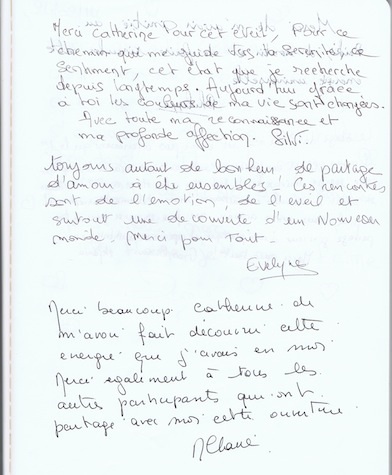 Merci Catherine Pour cet éveil, Pour ce
chemin qui me guide vers la serenité, ce
Sentiment, cet état que je recherche
depuis longtemps. Aujourd'hui grâce
à toi les couleurs de ma vie sont changées.
Avec toute ma reconnaissance et
ma profonde affection. Silvi.
toujours autant de bonheur, de partage
d'amour à être ensembles! Ces rencontres
sont de l'émotion, de l'eveil et
surtout une decouverte d'un Nouveau
monde. Merci pour Tout -
Evelyne
Merci beaucoup Catherine de
m'avoir fait découvrir cette
energie que j'avais en moi
Merci egalement à tous les
autres participants qui ont
partagé avec moi cette ouverture.